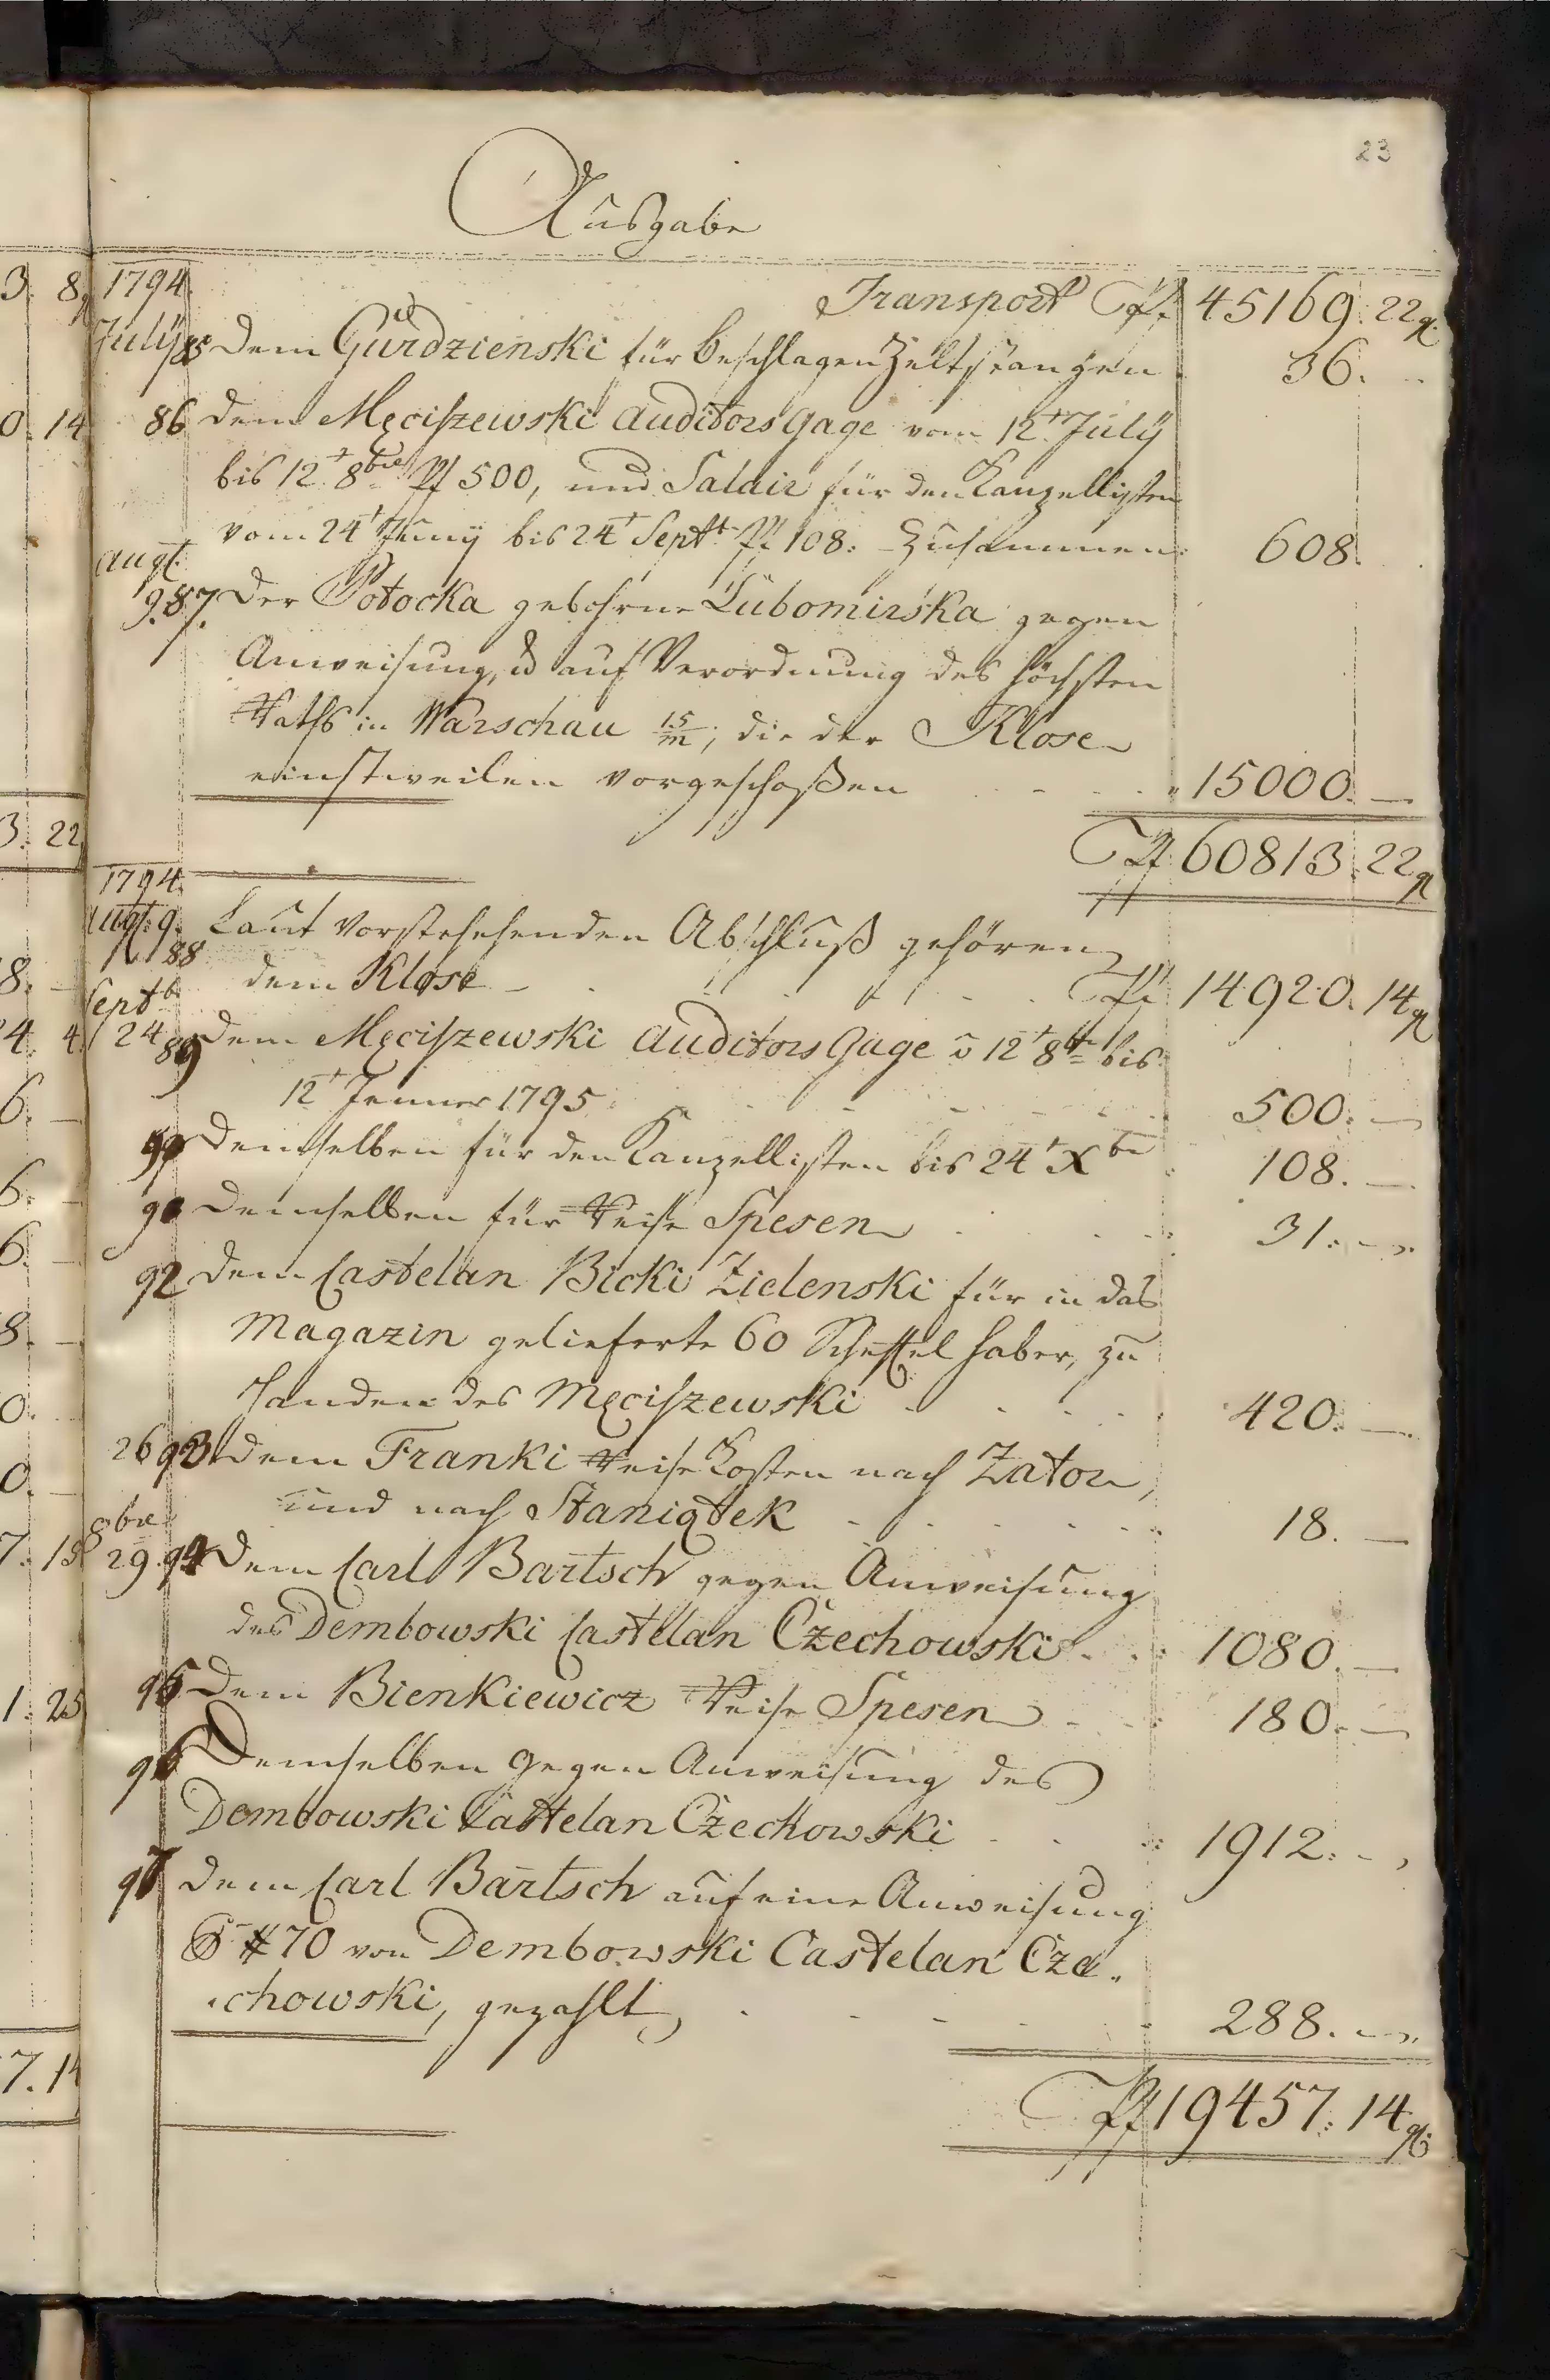 23
Ausgabe
3. 8 g
1794. Transport f 45169. 22 g.
July 85 dem Gurdzienski für beschlagen Zeltstangen 36.
0. 14
86 dem Męciszewski Auditors Gage vom 12t July
bis 12t 8bre f 500, und Salair für den Kanzellisten
vom 24t Juny bis 24t Septt f 108. Zusammen 608.
Augt.
9. 87. der Potocka gebohrne Lubomirska gegen
Anweisung, u auf Verordnung des höchsten
Raths in Warschau 15/m, die der Klose
einstweilen vorgeschoßen 15000. —
3. 22
f 60813. 22 g
1794.
Augt. 9. 88 Laut vorstehehenden Abschluß gehören
8. —
dem Klose f 14920. 14 g
Septb
4. 4
24 89 dem Męciszewski Auditors Gage v 12t 8br bis
12t Jenner 1795 500. —
6. —
90 demselben für den Kanzellisten bis 24t Xbr 108. —
6. —
91 demselben für Reise Spesen 31. —
6. —
92 dem Castelan Bicki Zielenski für in das
8. —
Magazin gelieferte 60 Scheffel Haber, zu
0. —
Handen des Męciszewski 420. —
26 93 dem Franki Reise Kosten nach Zator,
0. —
und nach Staniątek 18. —
8bre
7. 18
29. 94 dem Carl Bartsch gegen Anweisung
des Dembowski Castelan Czechowski 1080. —
1. 25
95 dem Bienkiewicz Reise Spesen 180. —
96 Demselben gegen Anweisung des
Dembowski Castelan Czechowski 1912. —
97 dem Carl Bartsch auf eine Anweisung
# 70 von Dembowski Castelan Cze-
chowski, gezahlt 288. —
7. 14
f 19457. 14 g.